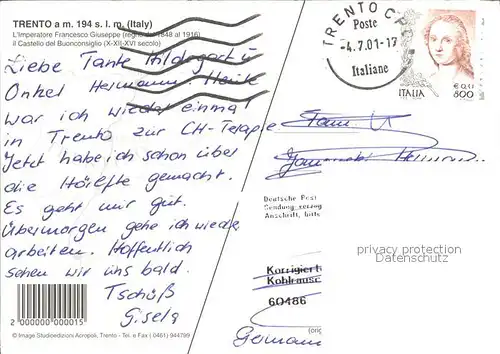 TRENTO a m. 194 s. l. m. (Italy)
L'Imperatore Francesco Giuseppe (regno dal 1848 al 1916)
il Castello del Buonconsiglio (X-XII-XVI secolo)
Liebe Tante Hildegart u
Onkel Hermann. Heute
war ich wieder einmal
in Trento zur CH-Terapie
Jetzt habe ich schon über
die Hälfte gemacht.
Es geht mir gut.
Übermorgen gehe ich wieder
arbeiten. Hoffentlich
sehen wir uns bald.
Tschüß
Gisela
2 000000 000015
© Image Studioedizioni Acropoli, Trento - Tel. e Fax ( 0461) 944799
TRENTO
Poste
-4.7.01-17
Italiane
ITALIA
€ 0,41
800
Fam
Deutsche Post
Sendung
Anschrift, bitte
privacy protection
Datenschutz
Korrigiert
Kohlrausc
60486
Germany